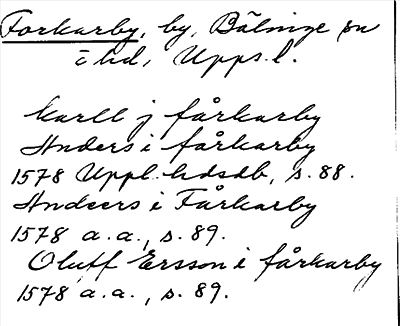 Forkarby, by, Bälinge sn
o hd, Upps. l.
Karll j fårkarby
Anders i fårkarby
1578 Uppl. hdsdb, s. 88.
Andeers i Fårkarby
1578 a.a., s. 89.
Oluff Ersson i fårkarby
1578 a.a., s. 89.